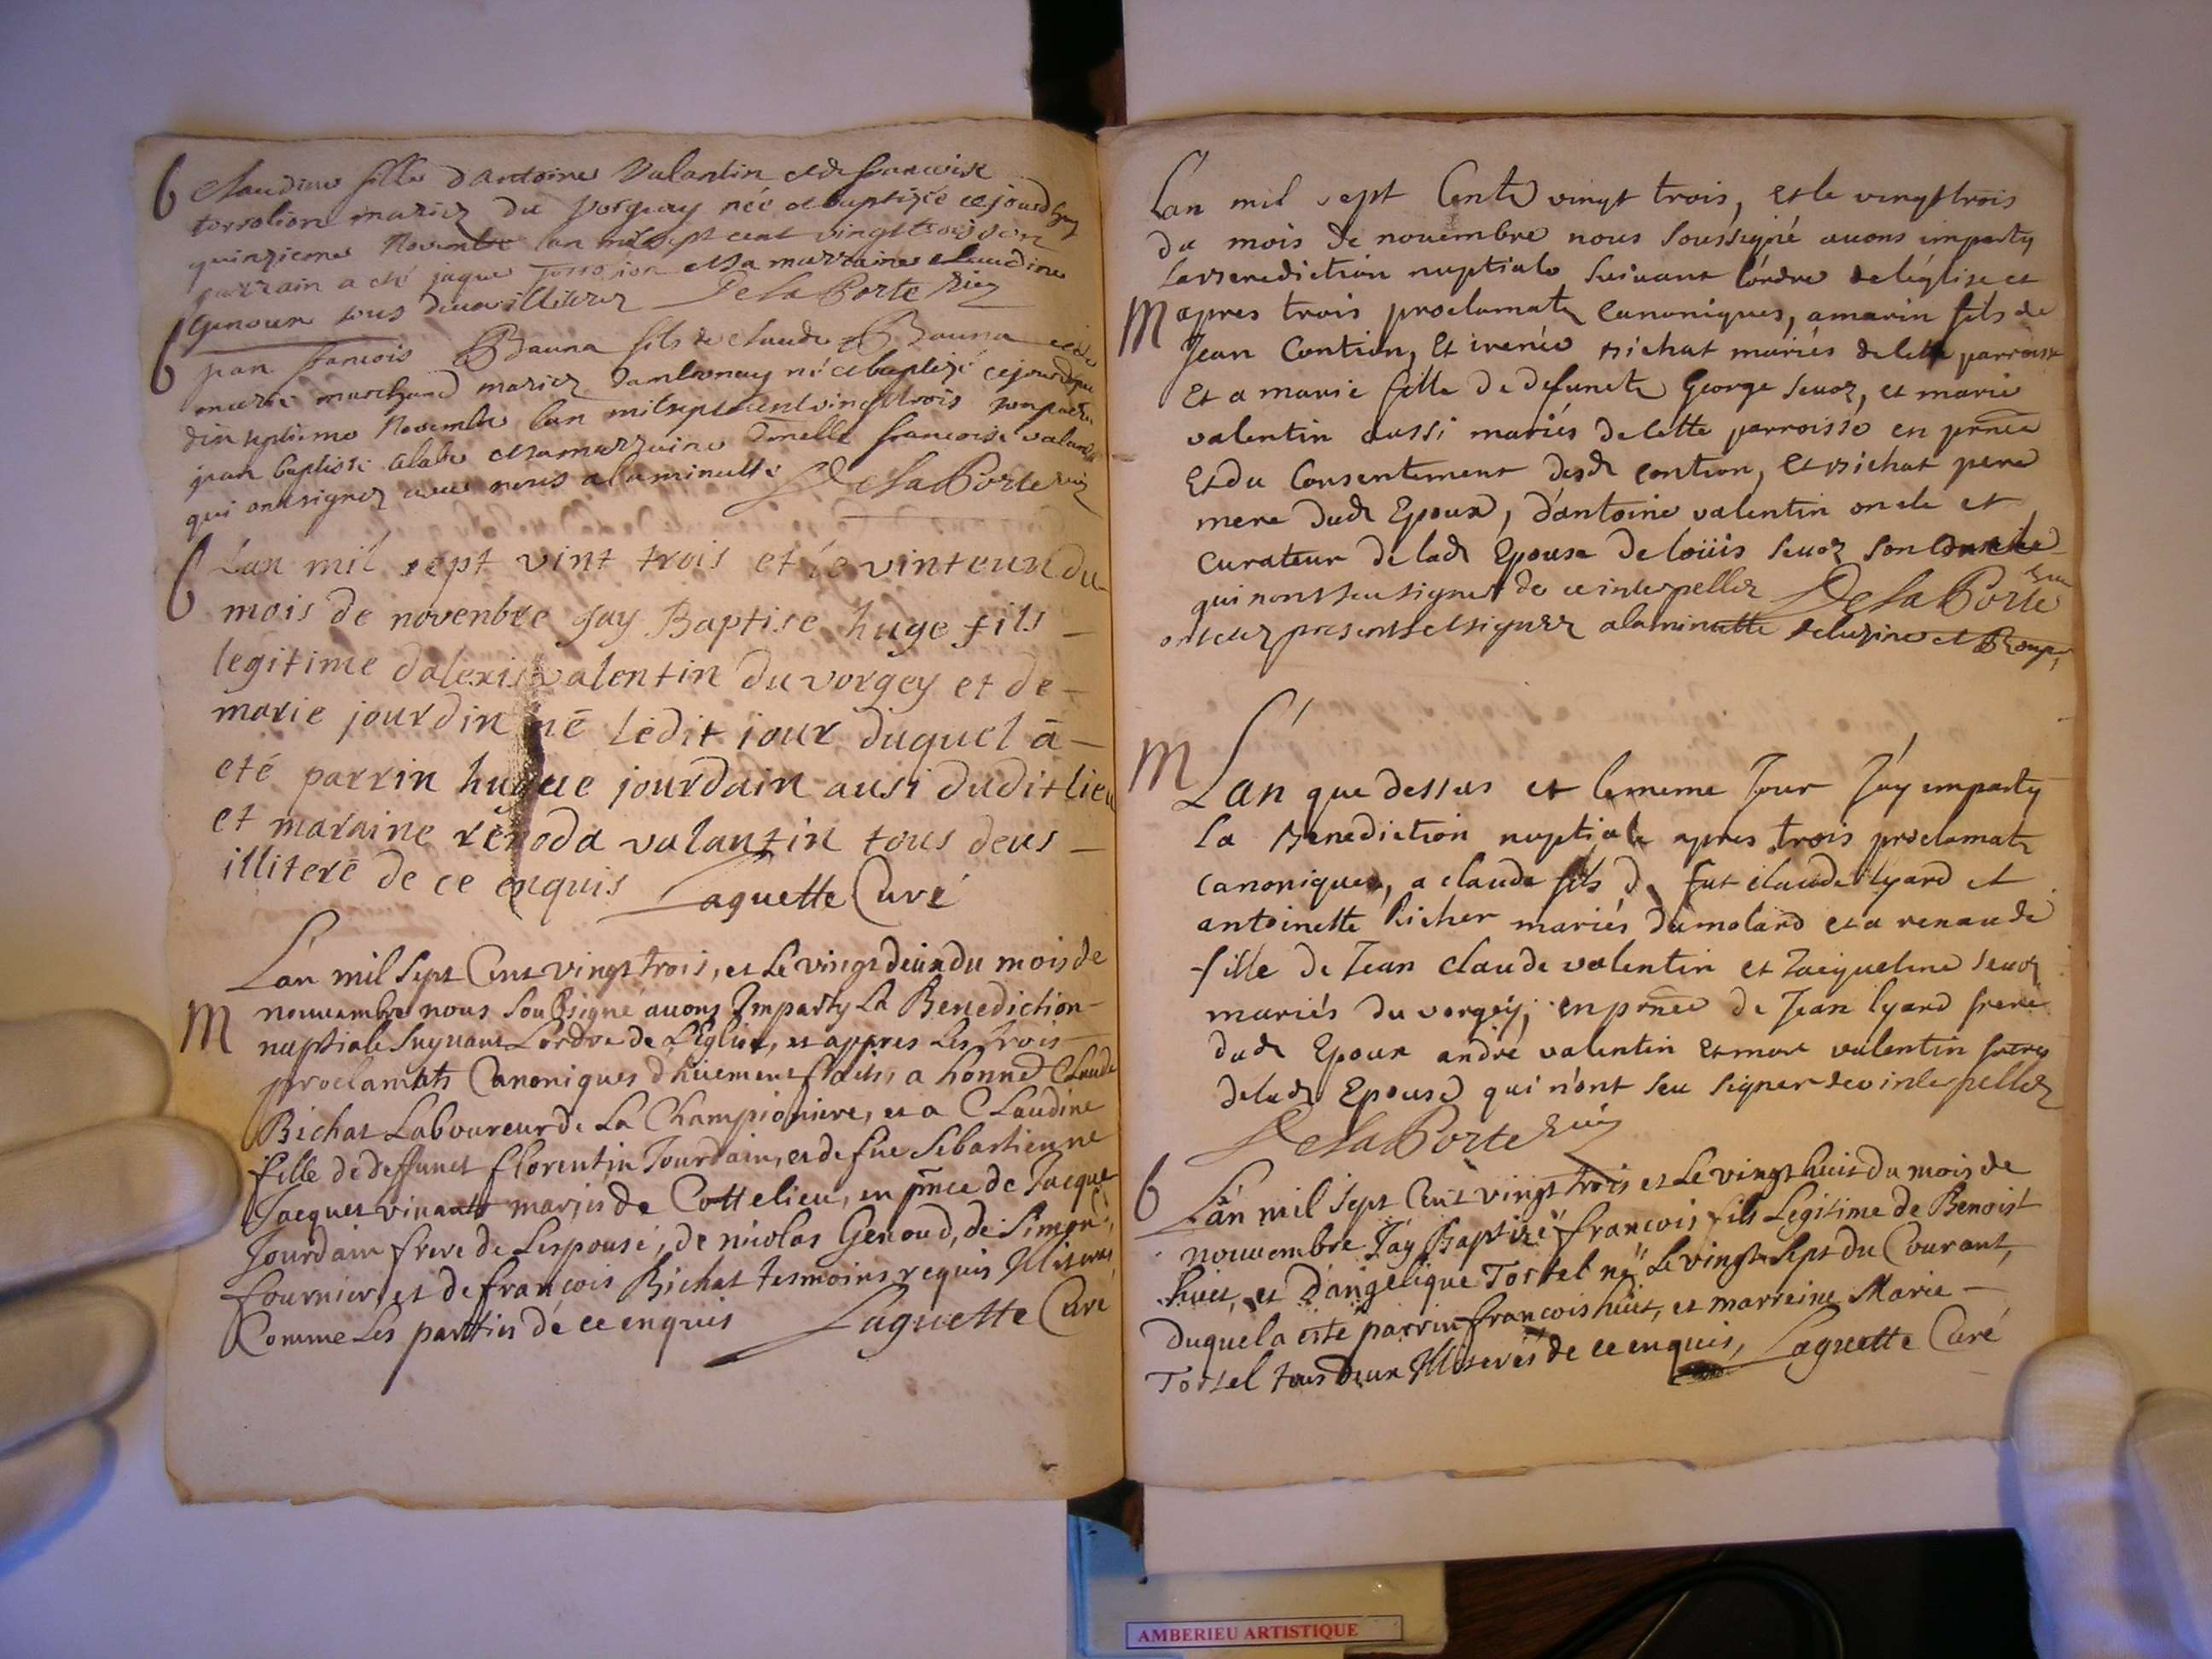 B Claudine fille dantoine Valantin et de francoise
torrolion mariez du vorgeay née et baptizée ce jourdhuy
quinzieme Novembre lan mil sept cent vingt trois son
parrain a eté jaque Torrolion et sa marraine claudine
Genoux tous deux illiterez De la Porte vic
B jean francois Bauna fils de claude Bauna et de
marie marchand mariez né et baptizé ce jourdhuy
dix septieme Novembre lan mil sept cent vingt trois son parrain
jean baptiste et sa marraine Demelle francoise valantin
qui ont signez avec nous a la minutte De la Porte vic
B Lan mil sept vint trois et le vinteun du
mois de novenbre jay Baptise huge fils
legitime dalexis valentin du vorgey et de
marie jourdin né ledit jour duquel a
eté parrin hugue jourdain ausi dudit lieu
et maraine renoda valantin tous deus
illiteré de ce enquis Laguette Curé
Lan mil sept Cent vingt trois, et Le vingt deux du mois de
M nouvembre nous Soubsigné avons Imparty La Benediction
nuptiale Suyvant Lordre de L'Eglise, et appres Les trois
proclamats Canoniques dhuement faits, a honneᵈ Claude
Bichat Laboureur de La Championiere, et a Claudine
fille de deffunct florentin Jourdain, et de fue Sebastienne
Jacquet vivants mariés de Cottelieu, en pnce de Jacque
Jourdain frere de Lespouse, de nicolas Genoud, de Simon
fournier, et de françois Bichat tesmoins requis Illiterés
Comme Les partties de ce enquis Laguette Curé
Lan mil sept Cent vingt trois, et le vingt trois
du mois de novembre nous soussigné avons imparty
la benediction nuptiale suivant l'ordre de l'église et
M apres trois proclamats canoniques, a marin fils de
Jean Contion, Et irenée bichat mariés de cette parroisse
Et a marie fille de defuncts George sevoz, et marie
valentin aussi mariés de cette parroisse en pnce
Et du Consentement desd contion, et bichat pere
mere dud Epoux, d'antoine valentin oncle et
curateur de lad Epouse de loüis sevoz son
qui nont sceu signer de ce interpellez De la Porte vic
presents et signez a la minutte
M L'an que dessus et le meme Jour J'ay imparty
la Benediction nuptiale apres trois proclamats
canoniques, a claude fils de fut claude lyard et
antoinette Richer mariés du molard et a renaude
fille de Jean claude valentin et Jacqueline sevoz
mariés du vorgey, en pnce de Jean lyard frere
dud Epoux andré valentin et valentin freres
de lad Epouse qui n'ont sceu signer de ce interpellez
De la Porte vic
B L'an mil Sept Cent vingt trois et Le vingt huit du mois de
nouvembre J'ay Baptizé françois fils Legitime de Benoist
huit, et D'angelique Tortel né Le vingt Sept du Courant,
Duquel a esté parrin francois huit, et marreine Marie
Tortel tous deux Illiterés de ce enquis, Laguette Curé
AMBERIEU ARTISTIQUE